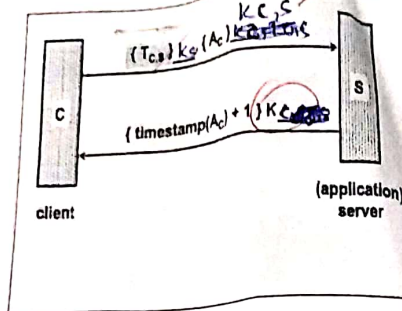 Kc,s
{Tc,s} Ks {Ac}
C
S
{ timestamp(Ac) + 1 } K
client
(application)
server